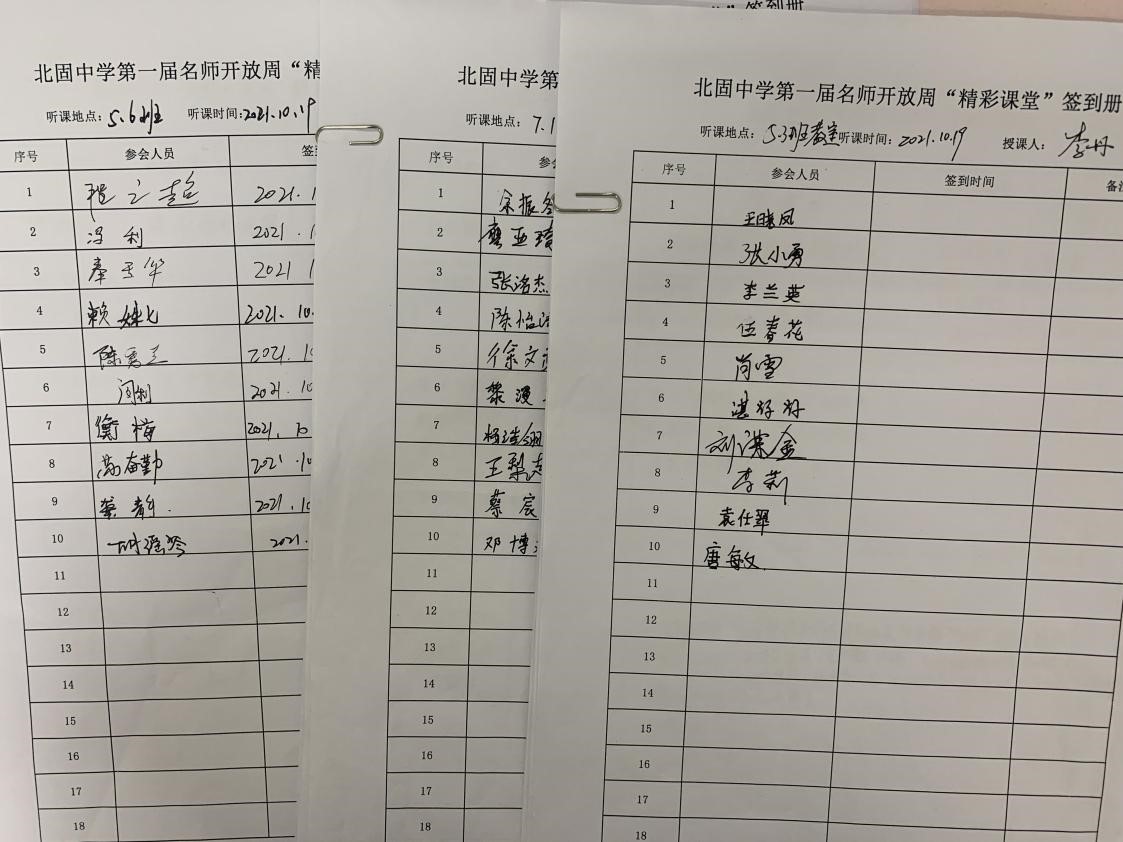 ”签到册
北固中学第一届名师开放周“精
听课地点：5.6班 听课时间：2021.10.19
序号 参会人员 签到
1 2021.1
2 冯利 2021.1
3 秦玉华 2021 1
4 赖姝 2021.10
5 陈 2021.10
6 闵利 2021.10
7 衡梅 2021.10
8 奋勤 2021.10
9 2021.10
10 胡 2021.
11
12
13
14
15
16
17
18
北固中学第
听课地点：7.1
序号 参会
1 余振
2 亚琦
3 张洺杰
4 陈怡
5 徐文
6 黎漫
7 杨
8 王梨
9 蔡宸
10 邓博
11
12
13
14
15
16
17
18
北固中学第一届名师开放周“精彩课堂”签到册
听课地点：5.3班教室 听课时间：2021.10.19 授课人：李丹
序号 参会人员 签到时间 备注
1 王晓凤
2 张小勇
3 李兰英
4 伍春花
5 肖雪
6
7 刘课金
8 李莉
9 袁仕翠
10 唐敏
11
12
13
14
15
16
17
18